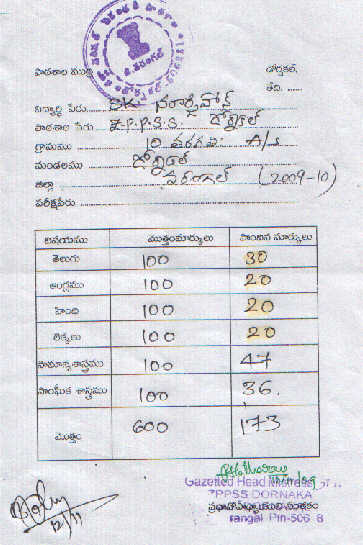 పాఠశాల ముద్ర
డోర్నకల్,
తేది.
విద్యార్థి పేరు
పాఠశాల పేరు Z.P.P.S.S. డోర్నకల్
గ్రామము 10 వ తరగతి A/S
మండలము డోర్నకల్
జిల్లా వరంగల్ (2009-10)
పరీక్షపేరు
విషయము మొత్తంమార్కులు పొందిన మార్కులు
తెలుగు 100 30
ఆంగ్లము 100 20
హింది 100 20
లెక్కలు 100 20
సామాన్యశాస్త్రము 100 47
సాంఘీక శాస్త్రము 100 36.
మొత్తం 600 173
Gazetted Head
ZPPSS DORNAKA
ప్రధానోపాధ్యాయుని సంతకం
rangal Pin-506 8